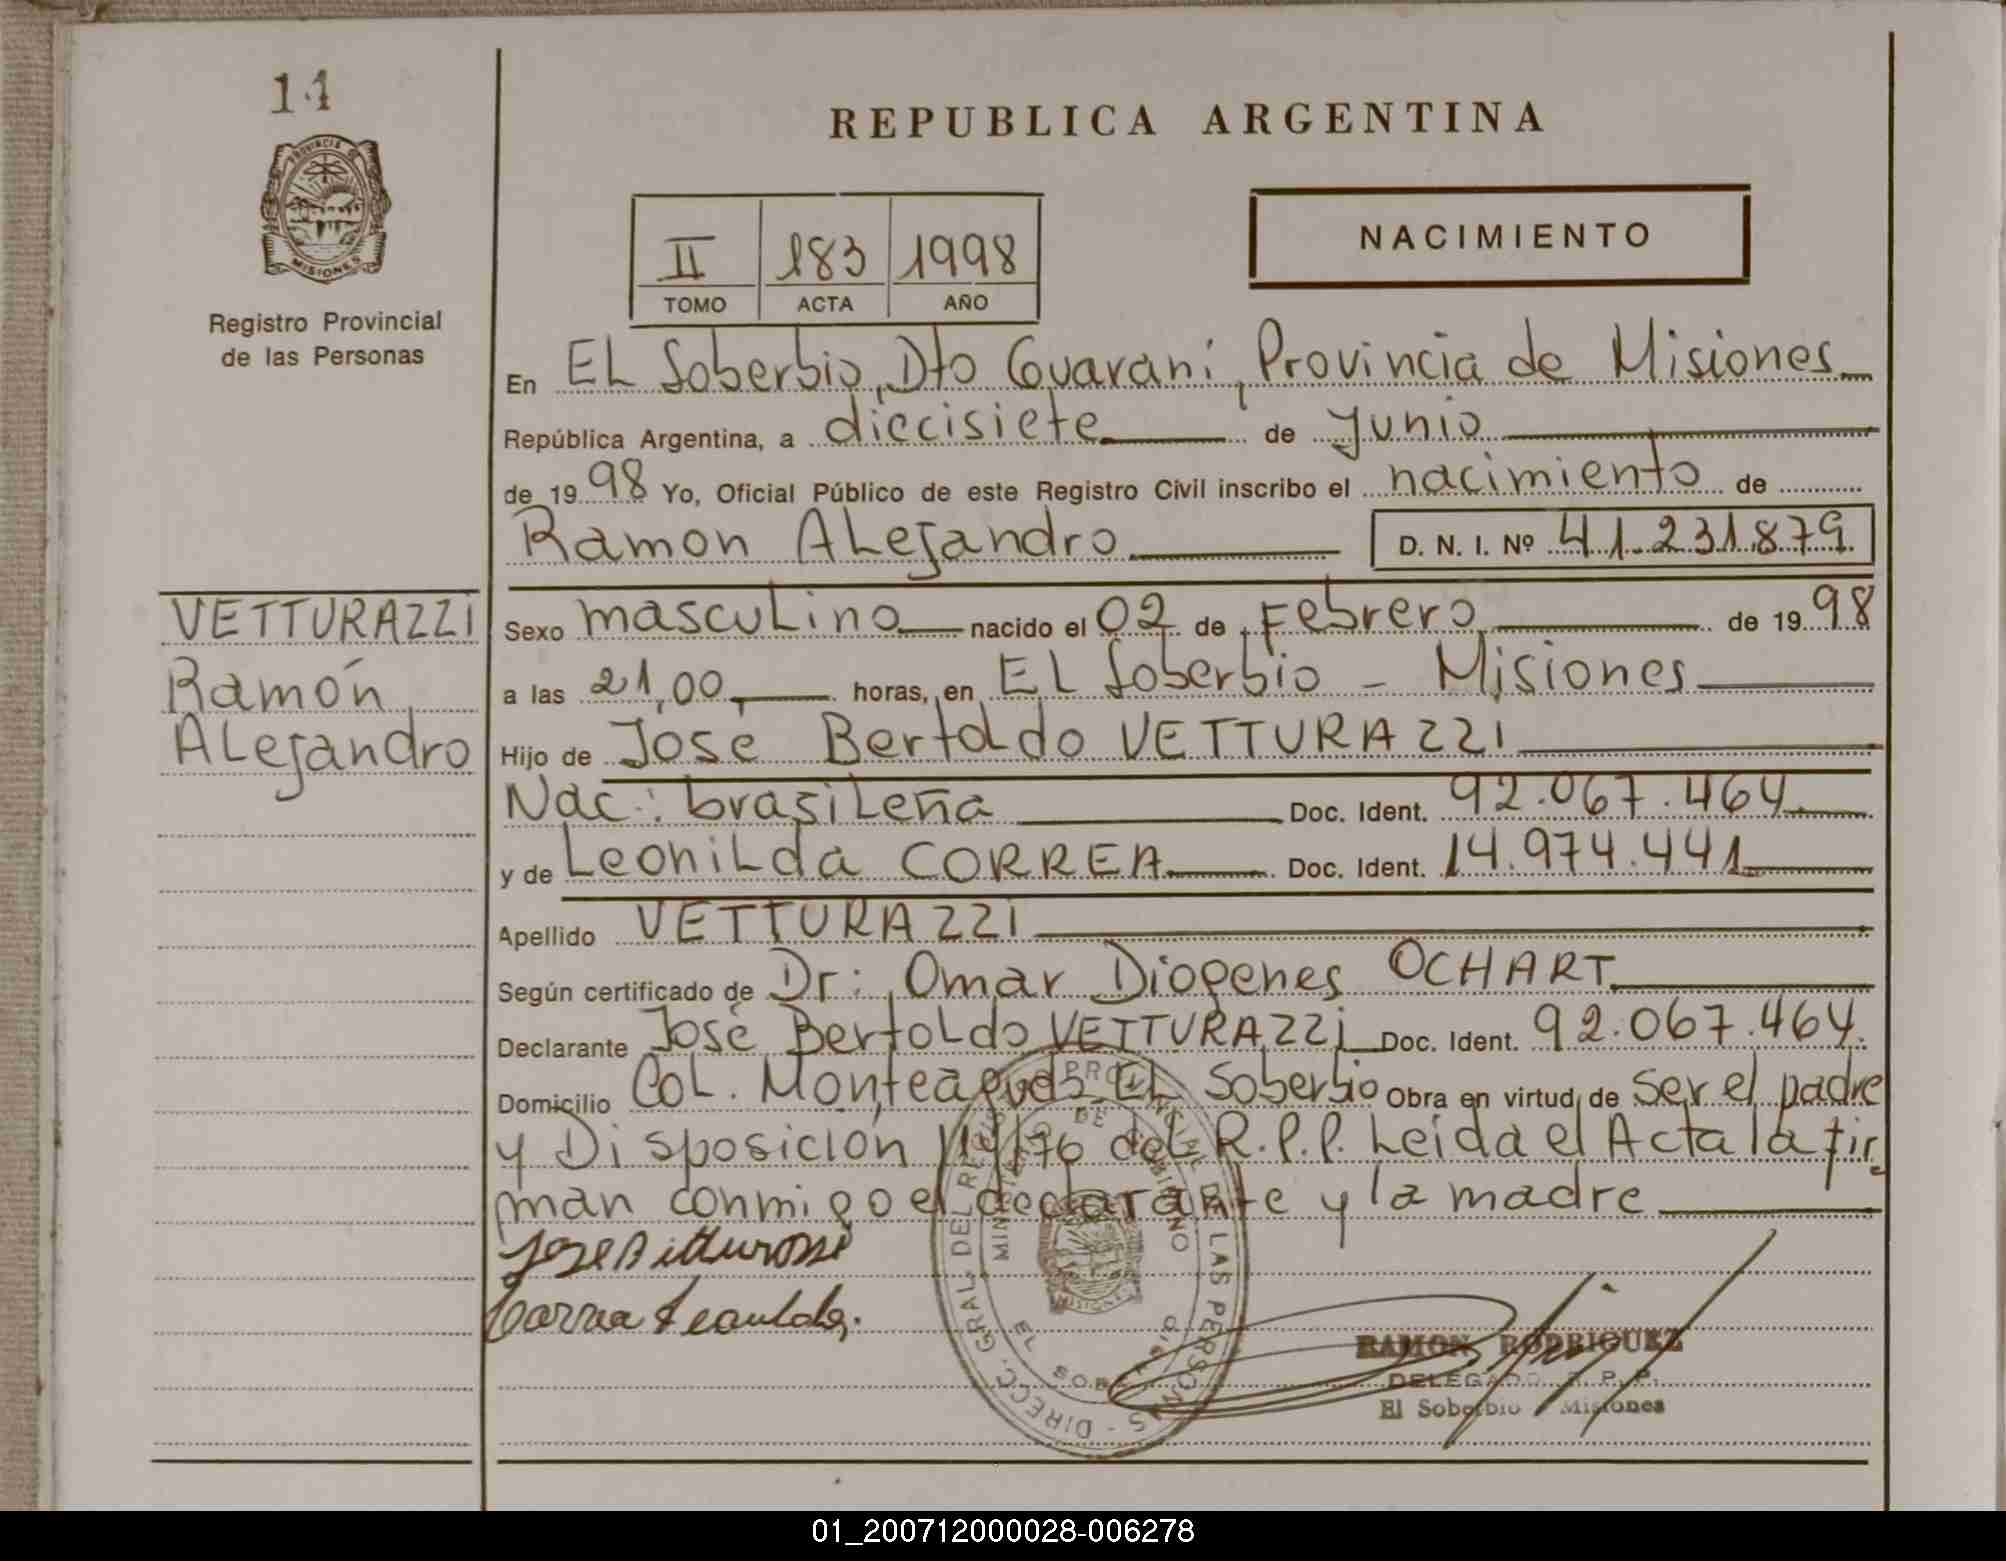 14
REPUBLICA ARGENTINA
PROVINCIA DE
MISIONES
Registro Provincial
de las Personas
II 183 1998
TOMO ACTA AÑO
NACIMIENTO
En EL Soberbio, Dto Guaraní, Provincia de Misiones
República Argentina, a diecisiete de Junio
de 1998 Yo, Oficial Público de este Registro Civil inscribo el nacimiento de
Ramon ALejandro D. N. I. Nº 41.231.879
VETTURAZZI
Ramón
ALejandro
Sexo mascuLino nacido el 02 de Febrero de 1998
a las 21,00 horas, en EL Soberbio - Misiones
Hijo de José BertoLdo VETTURAZZI
Nac: brasiLeña Doc. Ident. 92.067.464
y de LeoniLda CORREA Doc. Ident. 14.974.441
Apellido VETTURAZZI
Según certificado de Dr: Omar Diogenes OCHART
Declarante José BertoLdo VETTURAZZI Doc. Ident. 92.067.464.
Domicilio CoL. Monteagudo EL Soberbio Obra en virtud de ser el padre
y Disposición 119/76 deL R.P.P. Leída el Acta la fir
man conmigo el declarante y la madre
DIRECC. GRAL. DEL REGISTRO PROVINCIAL DE LAS PERSONAS
MINISTERIO DE GOBIERNO
MISIONES
EL SOBERBIO
RAMON RODRIGUEZ
DELEGADO R. P. P.
El Soberbio Misiones
01_200712000028-006278